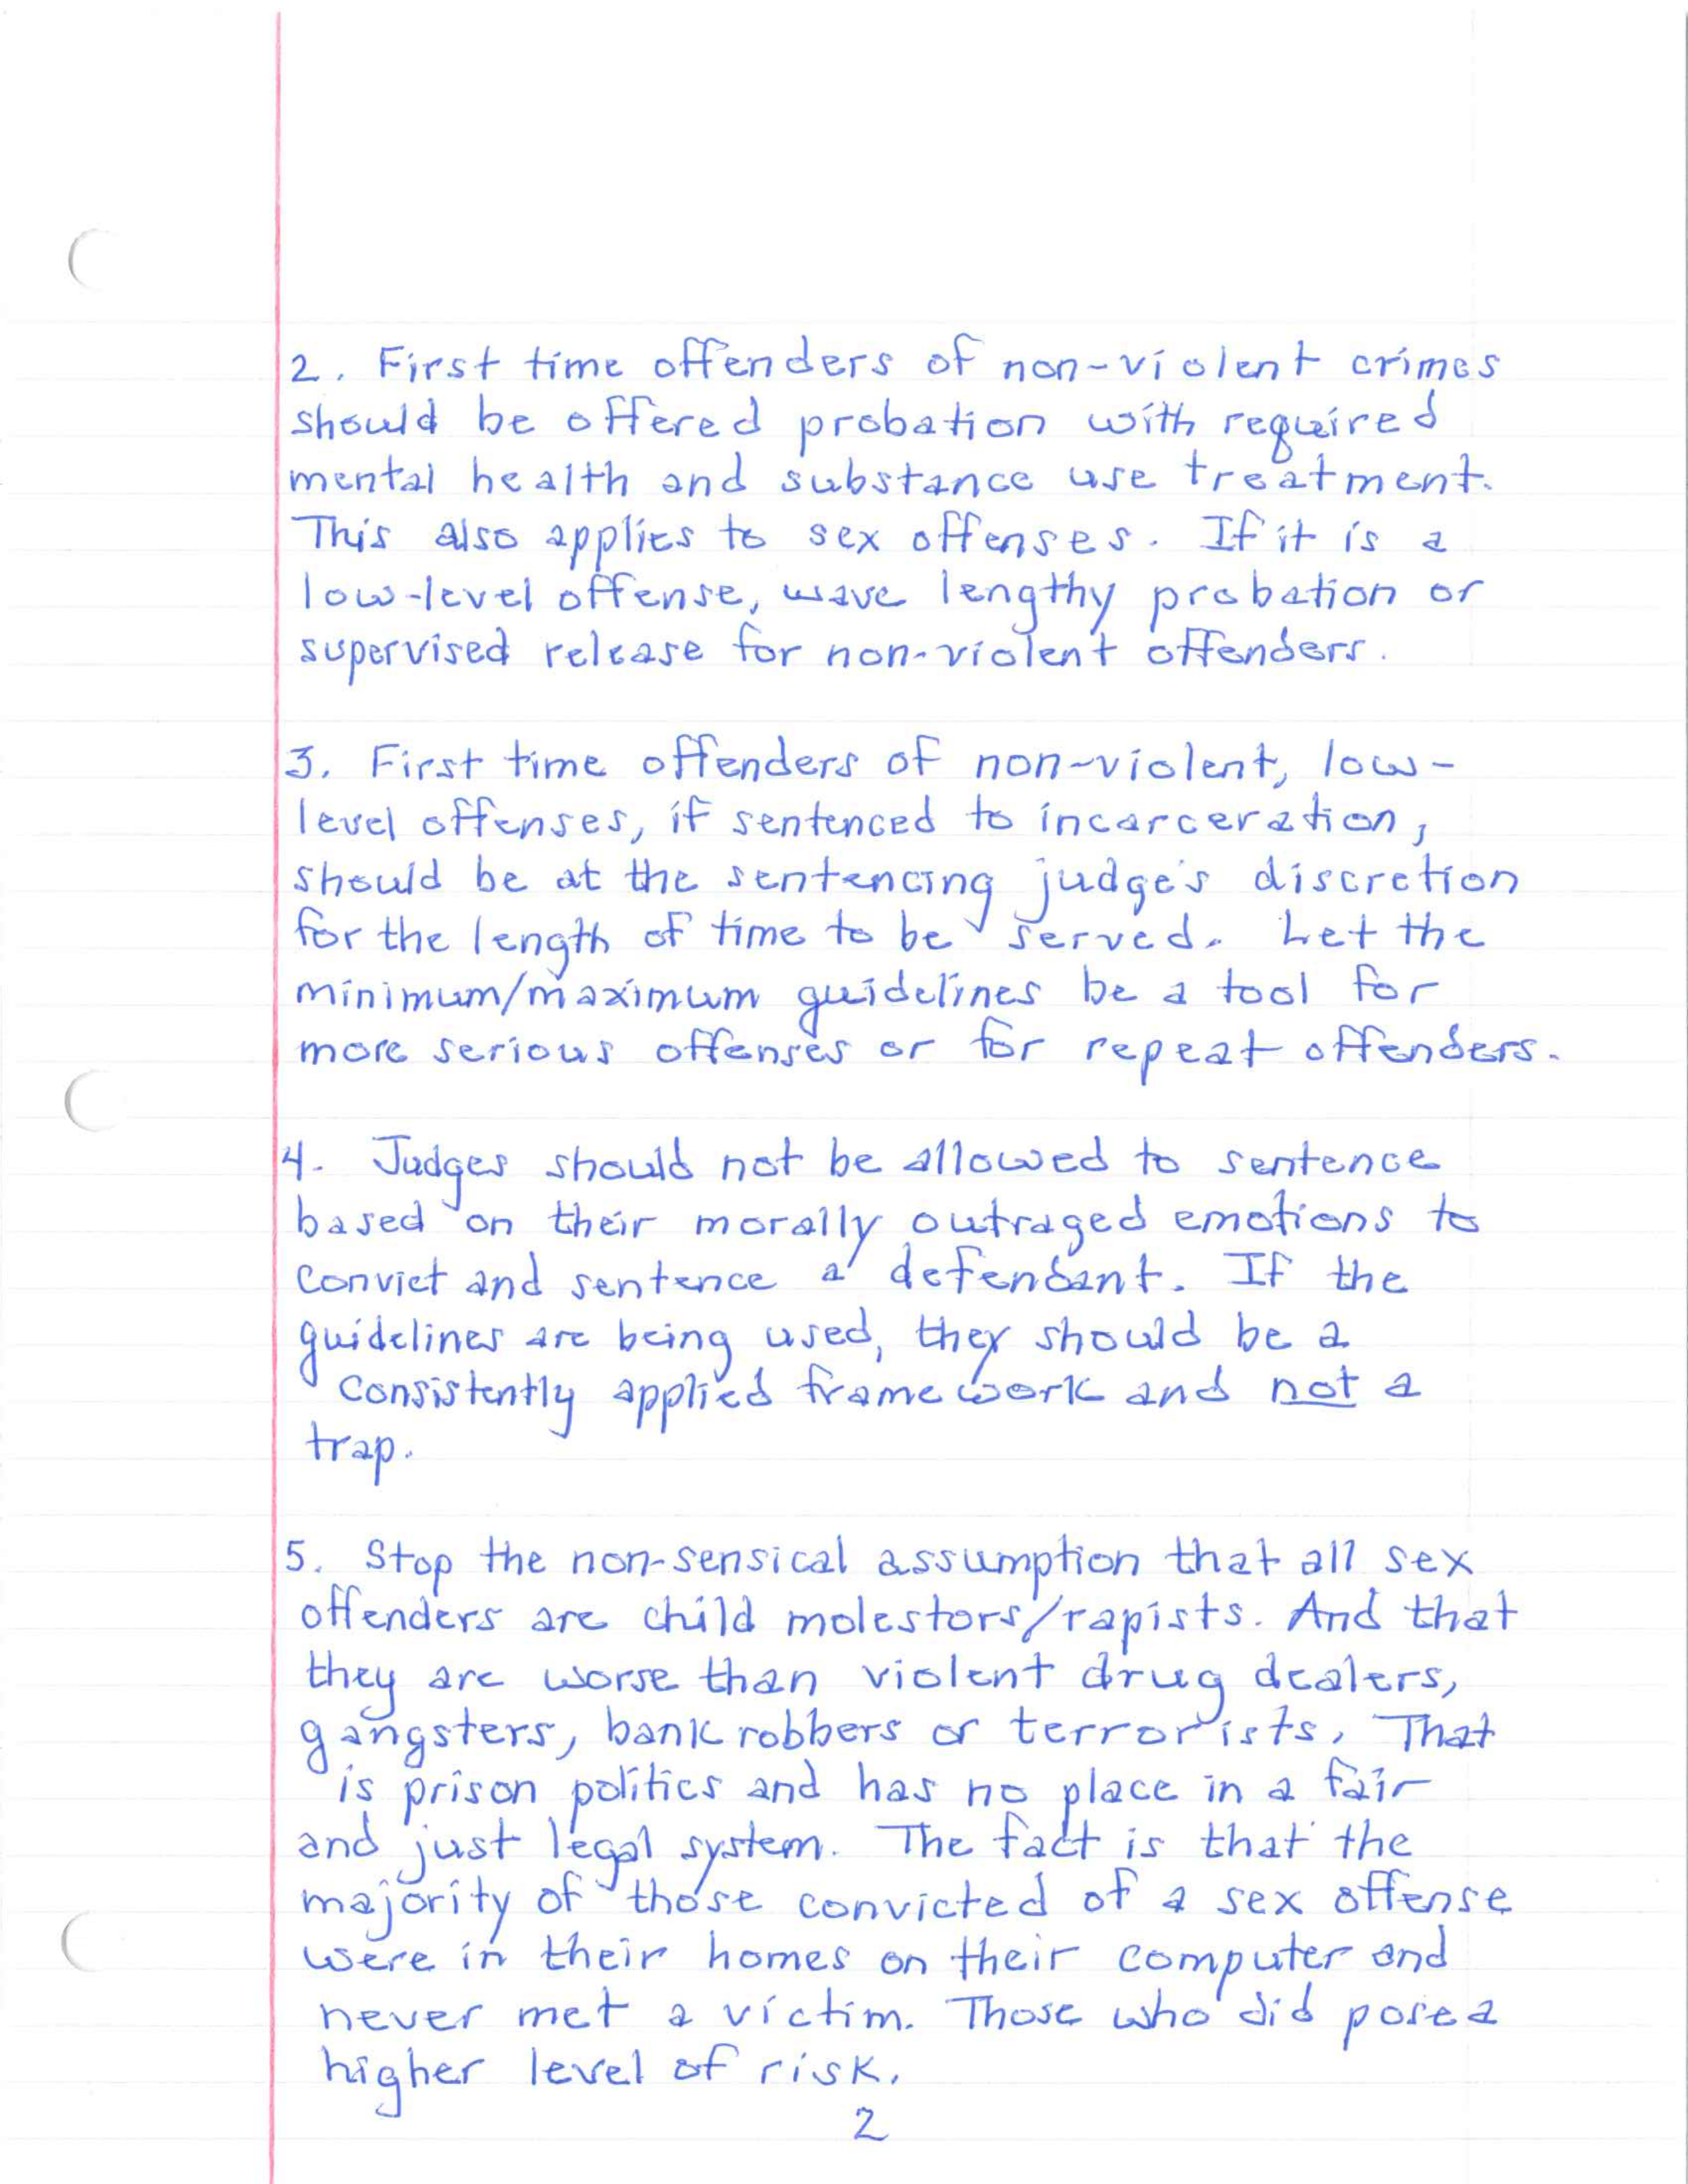 2. First time offenders of non-violent crimes
should be offered probation with required
mental health and substance use treatment.
This also applies to sex offenses. If it is a
low-level offense, wave lengthy probation or
supervised release for non-violent offenders.
3. First time offenders of non-violent, low-
level offenses, if sentenced to incarceration,
should be at the sentencing judge's discretion
for the length of time to be served. Let the
minimum/maximum guidelines be a tool for
more serious offenses or for repeat offenders.
4. Judges should not be allowed to sentence
based on their morally outraged emotions to
convict and sentence a defendant. If the
guidelines are being used, they should be a
consistently applied framework and not a
trap.
5. Stop the non-sensical assumption that all sex
offenders are child molestors/rapists. And that
they are worse than violent drug dealers,
gangsters, bank robbers or terrorists. That
is prison politics and has no place in a fair
and just legal system. The fact is that the
majority of those convicted of a sex offense
were in their homes on their computer and
never met a victim. Those who did pose a
higher level of risk.
2